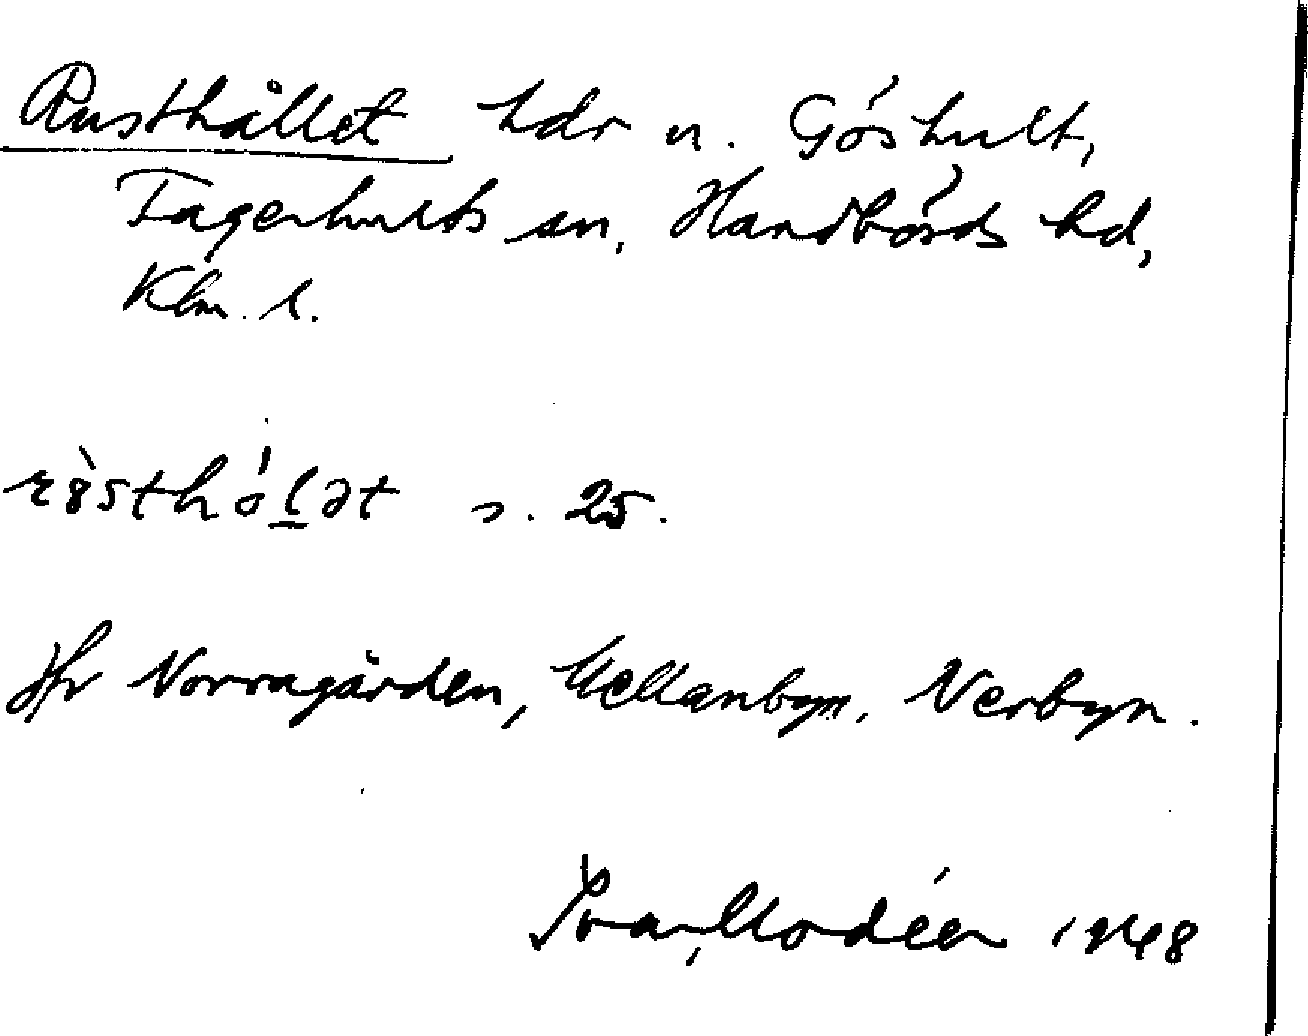 Rusthållet hdr u. Göshult,
Fagerhults sn, Handbörds hd,
Klm. l.
s. 25.
Jfr Norragården, Mellanbyn, Nerbyn.
Ivar Modéer 1948